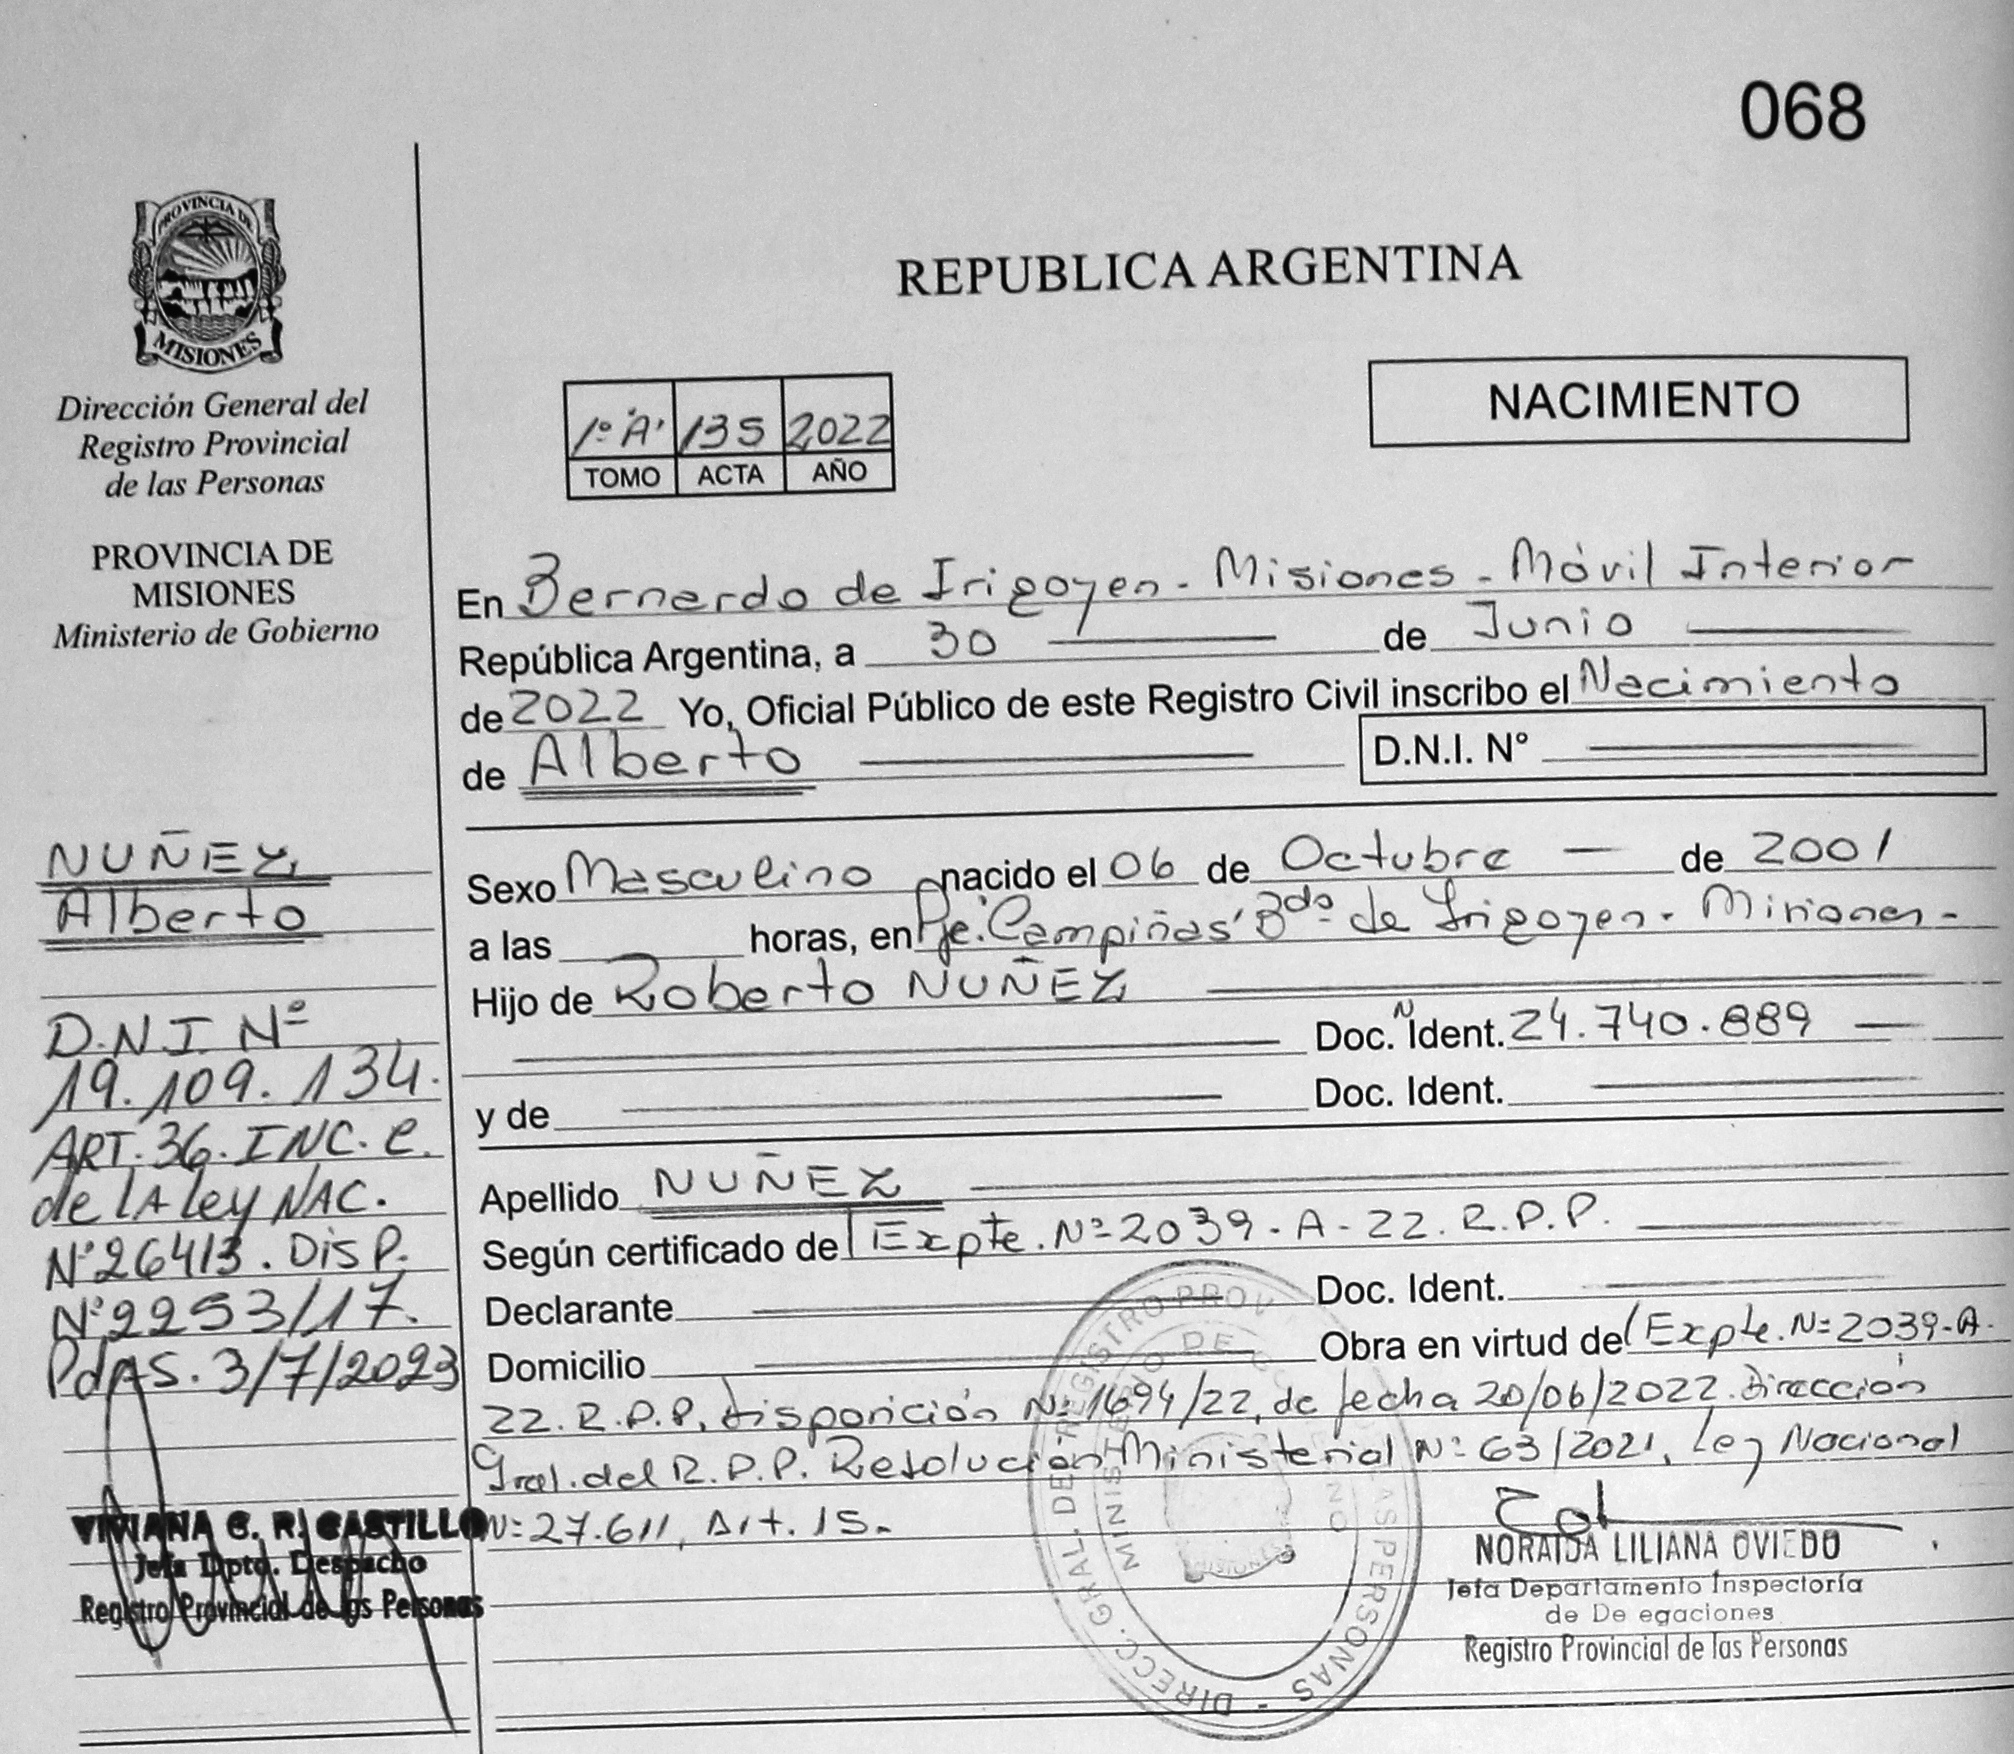 068
PROVINCIA DE
MISIONES
Dirección General del
Registro Provincial
de las Personas
PROVINCIA DE
MISIONES
Ministerio de Gobierno
NUÑEZ
Alberto
D.N.I. Nº
19.109.134.
ART. 36. INC. C.
de LA Ley NAC.
Nº 26413. DISP.
Nº 2253/17.
PdAS. 3/7/2023
VIVIANA C. R. CASTILLO
Jefa Dpto. Despacho
Registro Provincial de las Personas
REPUBLICA ARGENTINA
1º "A" 135 2022
TOMO ACTA AÑO
NACIMIENTO
En Bernardo de Irigoyen - Misiones - Móvil Interior
República Argentina, a 30 de Junio
de 2022 Yo, Oficial Público de este Registro Civil inscribo el Nacimiento
de Alberto D.N.I. N°
Sexo Masculino nacido el 06 de Octubre de 2001
a las horas, en Pje. Campiñas Bdo. de Irigoyen - Misiones -
Hijo de Roberto NUÑEZ
Doc. N Ident. 24.740.889
y de Doc. Ident.
Apellido NUÑEZ
Según certificado de Expte. Nº 2039-A-22. R.P.P.
Declarante Doc. Ident.
Domicilio Obra en virtud de Expte. Nº 2039-A-
22. R.P.P, disposición Nº 1694/22, de fecha 20/06/2022. Dirección
Gral. del R.P.P. Resolución Ministerial Nº 63/2021, Ley Nacional
Nº 27.611, Art. 15.
DIRECC. GRAL. DEL REGISTRO PROV LAS PERSONAS -
MINISTERIO DE
MISIONES
NORAIDA LILIANA OVIEDO
Jefa Departamento Inspectoría
de De egaciones
Registro Provincial de las Personas